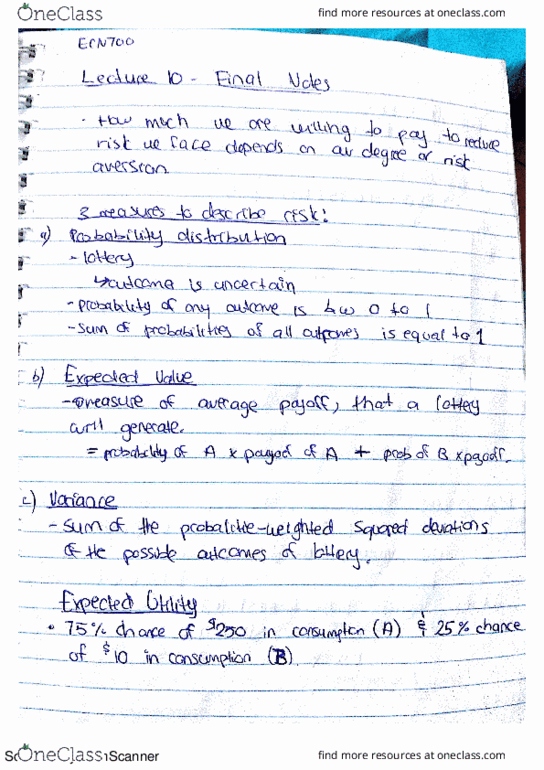 OneClass
find more resources at oneclass.com
ECN700
Lecture 10 - Final Notes
· How much we are willing to pay to reduce
risk we face depends on our degree or risk
aversion
3 measures to describe risk:
a) Probability distribution
- lottery
↳ outcome is uncertain
- probability of any outcome is b/w 0 to 1
- sum of probabilities of all outcomes is equal to 1
b) Expected Value
- measure of average payoff, that a lottery
will generate.
= probability of A x payoff of A + prob of B x payoff.
c) Variance
- sum of the probabilitie-weighted squared deviations
of the possible outcomes of lottery.
Expected Utility
• 75% chance of $250 in consumption (A) & 25% chance
of $10 in consumption (B)
OneClass
Scanner
find more resources at oneclass.com